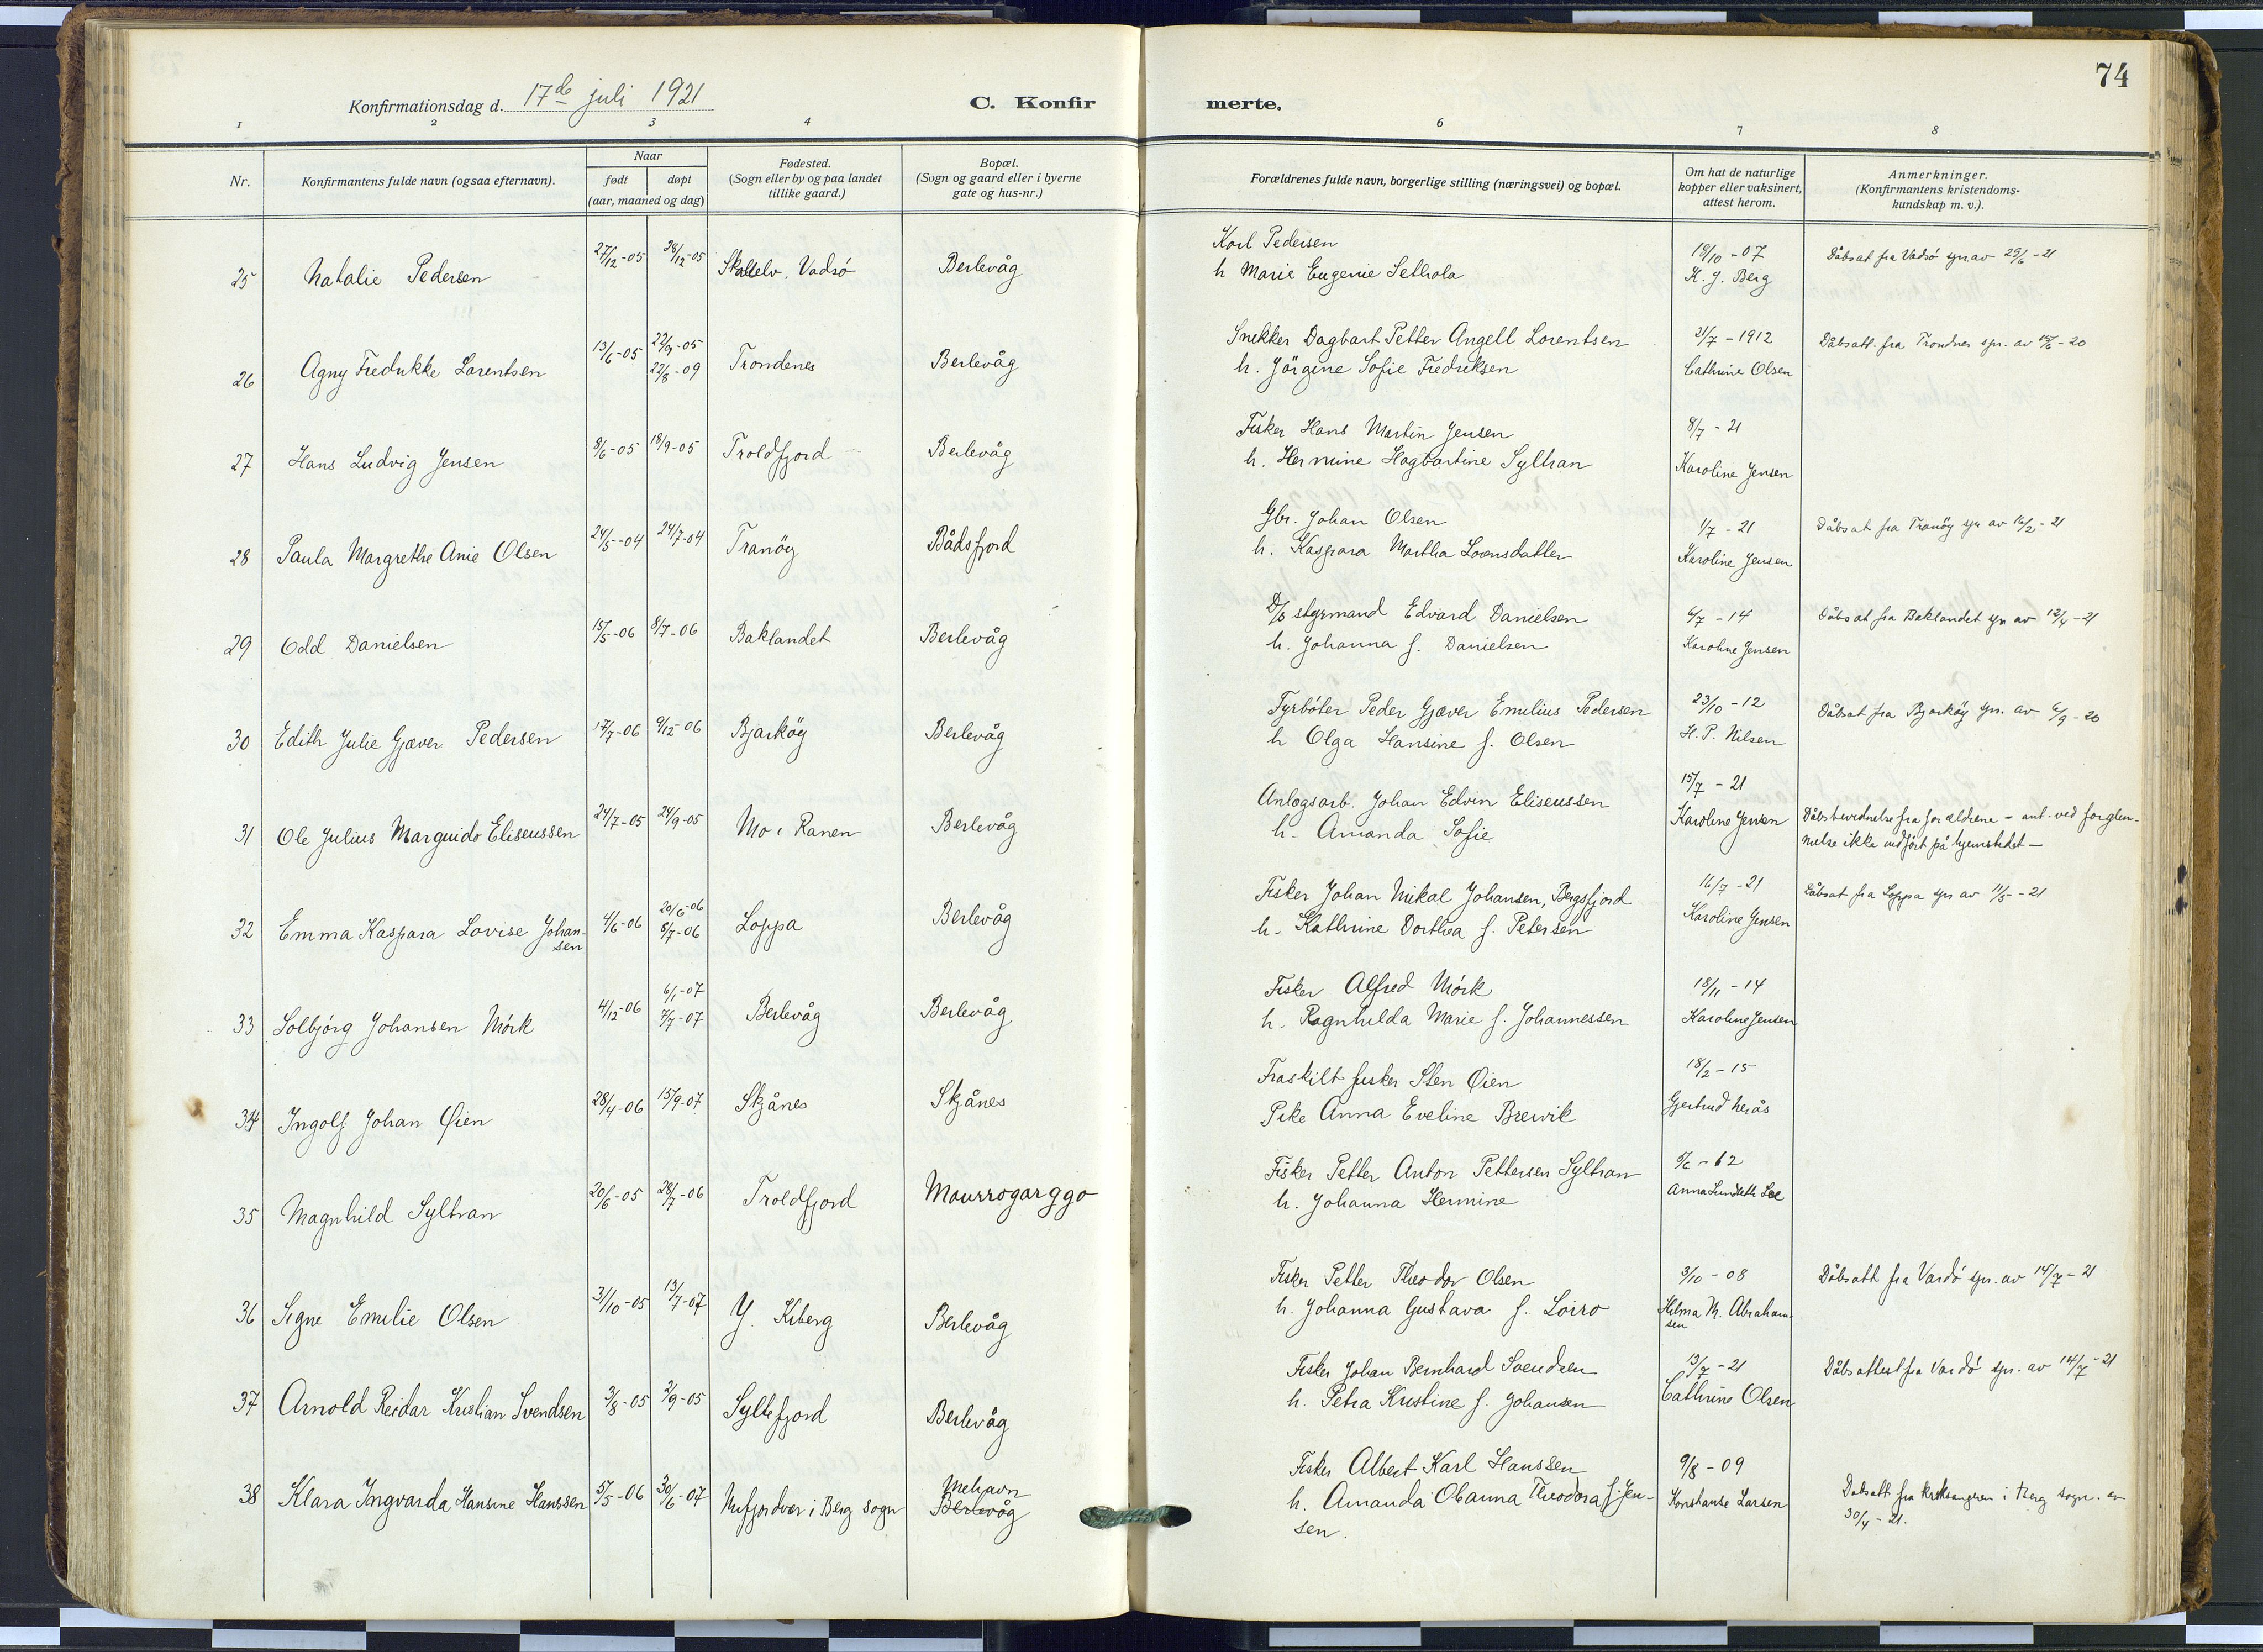 Konfirmationsdag d. 17de juli 1921
C. Konfir
merte.
74
1 2 3 4 6 7 8
Nr.
Konfirmantens fulde navn (ogsaa efternavn).
Naar
født døpt
(aar, maaned og dag)
Fødested.
(Sogn eller by og paa landet
tillike gaard.)
Bopæl.
(Sogn og gaard eller i byerne
gate og hus-nr.)
Forældrenes fulde navn, borgerlige stilling (næringsvei) og bopæl.
Om hat de naturlige
kopper eller vaksinert,
attest herom.
Anmerkninger.
(Konfirmantens kristendoms-
kundskap m. v.).
25 Natalie Pedersen 27/12-05 28/12-05 Skallelv, Vadsö Berlevåg
Karl Pedersen
h Marie Eugenie Sethola
18/10-07
K. J. Berg
Dåbsat fra Vadsö spr av 29/6-21
26 Agny Fredrikke Lorentsen 13/6-05 22/9-05
22/8-09
Trondenes Berlevåg
Snekker Dagbart Petter Angell Lorentsen
h. Jörgine Sofie Fredriksen
21/7-1912
Cathrine Olsen
Dåbsatt. fra Trondnes spr. av -20
27 Hans Ludvig Jensen 8/6-05 18/9-05 Troldfjord Berlevåg
Fisker Hans Martin Jensen
h. Hermine Hagbartine Syltran
8/7-21
Karoline Jensen
28 Paula Margrethe Anie Olsen 24/5-04 24/7-04 Tranöy Bådsfjord
Gbr. Johan Olsen
h. Kaspara Martha Loensdatter
1/7-21
Karoline Jensen
Dåbsat fra Tranöy spr av 16/2-21
29 Odd Danielsen 15/5-06 8/7-06 Baklandet Berlevåg
D/s styrmand Edvard Danielsen
h. Johanna f. Danielsen
6/7-14
Karoline Jensen
Dåbsat fra Baklandet spr av 12/4-21
30 Edith Julie Gjæver Pedersen 17/7-06 9/12-06 Bjarköy Berlevåg
Fyrböter Peder Gjæver Emilius Pedersen
h Olga Hansine f. Olsen
23/10-12
H. P. Nilsen
Dåbsat fra Bjarköy spr. av 6/9-20
31 Ole Julius Marguido Eliseussen 24/7-05 24/9-05 Mo i Ranen Berlevåg
Anlogsarb. Johan Edvin Eliseussen
h. Amanda Sofie
15/7-21
Karoline Jensen
Dåbsbevidnelse fra forældrene - ant. ved forglem-
melse ikke indfört på hjemstedet -
32 Emma Kaspara Lovise Johan-
sen
4/6-06 20/6-06
8/7-06
Loppa Berlevåg
Fisker Johan Mikal Johansen, Bergsfjord
h. Kathrine Dorthea f. Petersen
16/7-21
Karoline Jensen
Dåbsat fra Loppa spr av 11/5-21
33 Solbjörg Johansen Mörk 4/12-06 6/1-07
7/7-07
Berlevåg Berlevåg
Fisker Alfred Mörk
h. Ragnhilda Marie f. Johannessen
18/11-14
Karoline Jensen
34 Ingolf Johan Øien 28/4-06 15/9-07 Skjånes Skjånes
Fraskilt fisker Sten Øien
Pike Anna Eveline Brevik
18/2-15
Gjertrud
35 Magnhild Syltran 20/6-05 28/7-06 Troldfjord Mourrogarggo
Fisker Petter Anton Pettersen Syltran
h. Johanna Hermine
-12
Anna
36 Signe Emilie Olsen 3/10-05 13/7-07 Y. Kiberg Berlevåg
Fisker Petter Theodor Olsen
h. Johanna Gustava f. Loiro
3/10-08
Hilma M. Abraham-
sen
Dåbsatt fra Vardö spr. av 14/7-21
37 Arnold Reidar Kristian Svendsen 3/8-05 2/9-05 Syltefjord Berlevåg
Fisker Johan Bernhard Svendsen
h. Petra Kristine f. Johansen
13/7-21
Cathrine Olsen
Dåbsattest fra Vardö spr. av 14/7-21
38 Klara Ingvarda Hansine Hanssen 5/5-06 30/6-07 Mefjordvær i Berg sogn
Mehavn
Berlevåg
Fisker Albert Karl Hanssen
h. Amanda Olianna Theodora f. Jen-
sen.
9/8-09
Konstanse Larsen
Dåbsatt fra kirkesangeren i Berg sogn. av
30/4-21.